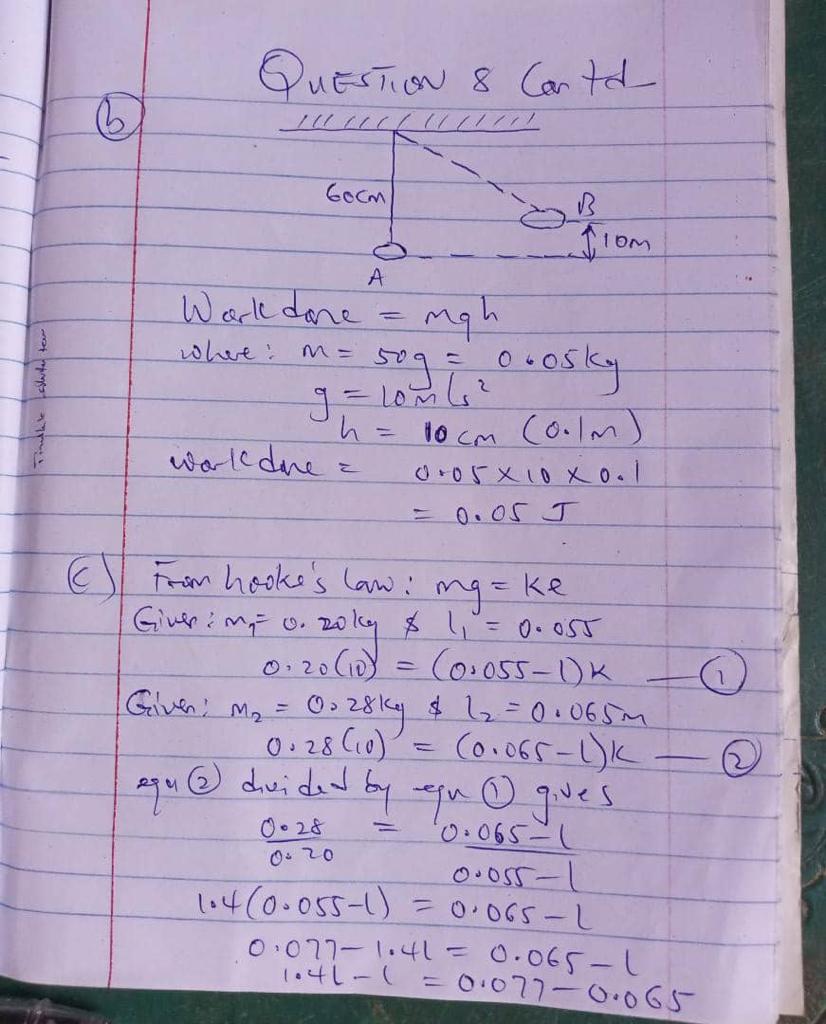 QUESTION 8 Contd
(b)
60cm
B
10m
A
Workdone = mgh
where: m = 50g = 0.05kg
g = 10m/s²
h = 10cm (0.1m)
workdone = 0.05 x 10 x 0.1
= 0.05 J
(c) From hooke's law: mg = ke
Given: m₁ = 0.20kg & l₁ = 0.055
0.20(10) = (0.055-l)k — (1)
Given: m₂ = 0.28kg & l₂ = 0.065m
0.28(10) = (0.065-l)k — (2)
equ (2) divided by equ (1) gives
0.28 = 0.065-l
0.20 0.055-l
1.4(0.055-l) = 0.065-l
0.077-1.4l = 0.065-l
1.4l-l = 0.077-0.065